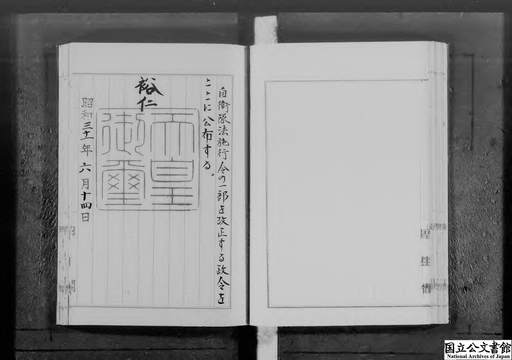 自衛隊法施行令の一部を改正する政令を
ここに公布する。
裕仁
天皇
御璽
昭和三十一年六月十四日
国立公文書館
National Archives of Japan